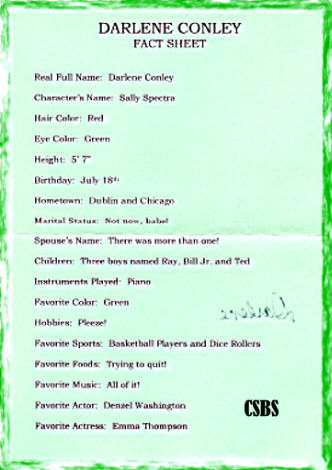 DARLENE CONLEY
FACT SHEET
Real Full Name: Darlene Conley
Character's Name: Sally Spectra
Hair Color: Red
Eye Color: Green
Height: 5' 7"
Birthday: July 18th
Hometown: Dublin and Chicago
Marital Status: Not now, babe!
Spouse's Name: There was more than one!
Children: Three boys named Ray, Bill Jr. and Ted
Instruments Played: Piano
Favorite Color: Green
Darlene
Hobbies: Pleeze!
Favorite Sports: Basketball Players and Dice Rollers
Favorite Foods: Trying to quit!
Favorite Music: All of it!
Favorite Actor: Denzel Washington
CSBS
Favorite Actress: Emma Thompson